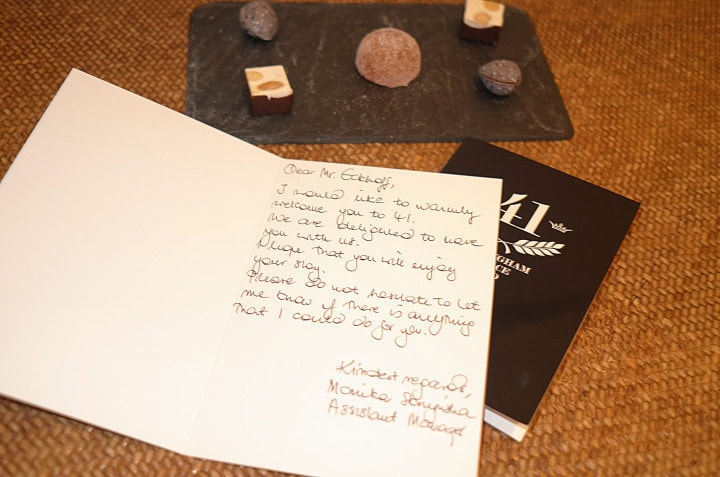 Dear Mr. Eckhoff,
I would like to warmly
welcome you to 41.
We are delighted to have
you with us.
I hope that you will enjoy
your stay.
Please do not hesitate to let
me know if there is anything
that I could do for you.
Kindest regards,
Monika
Assistant Manager
41